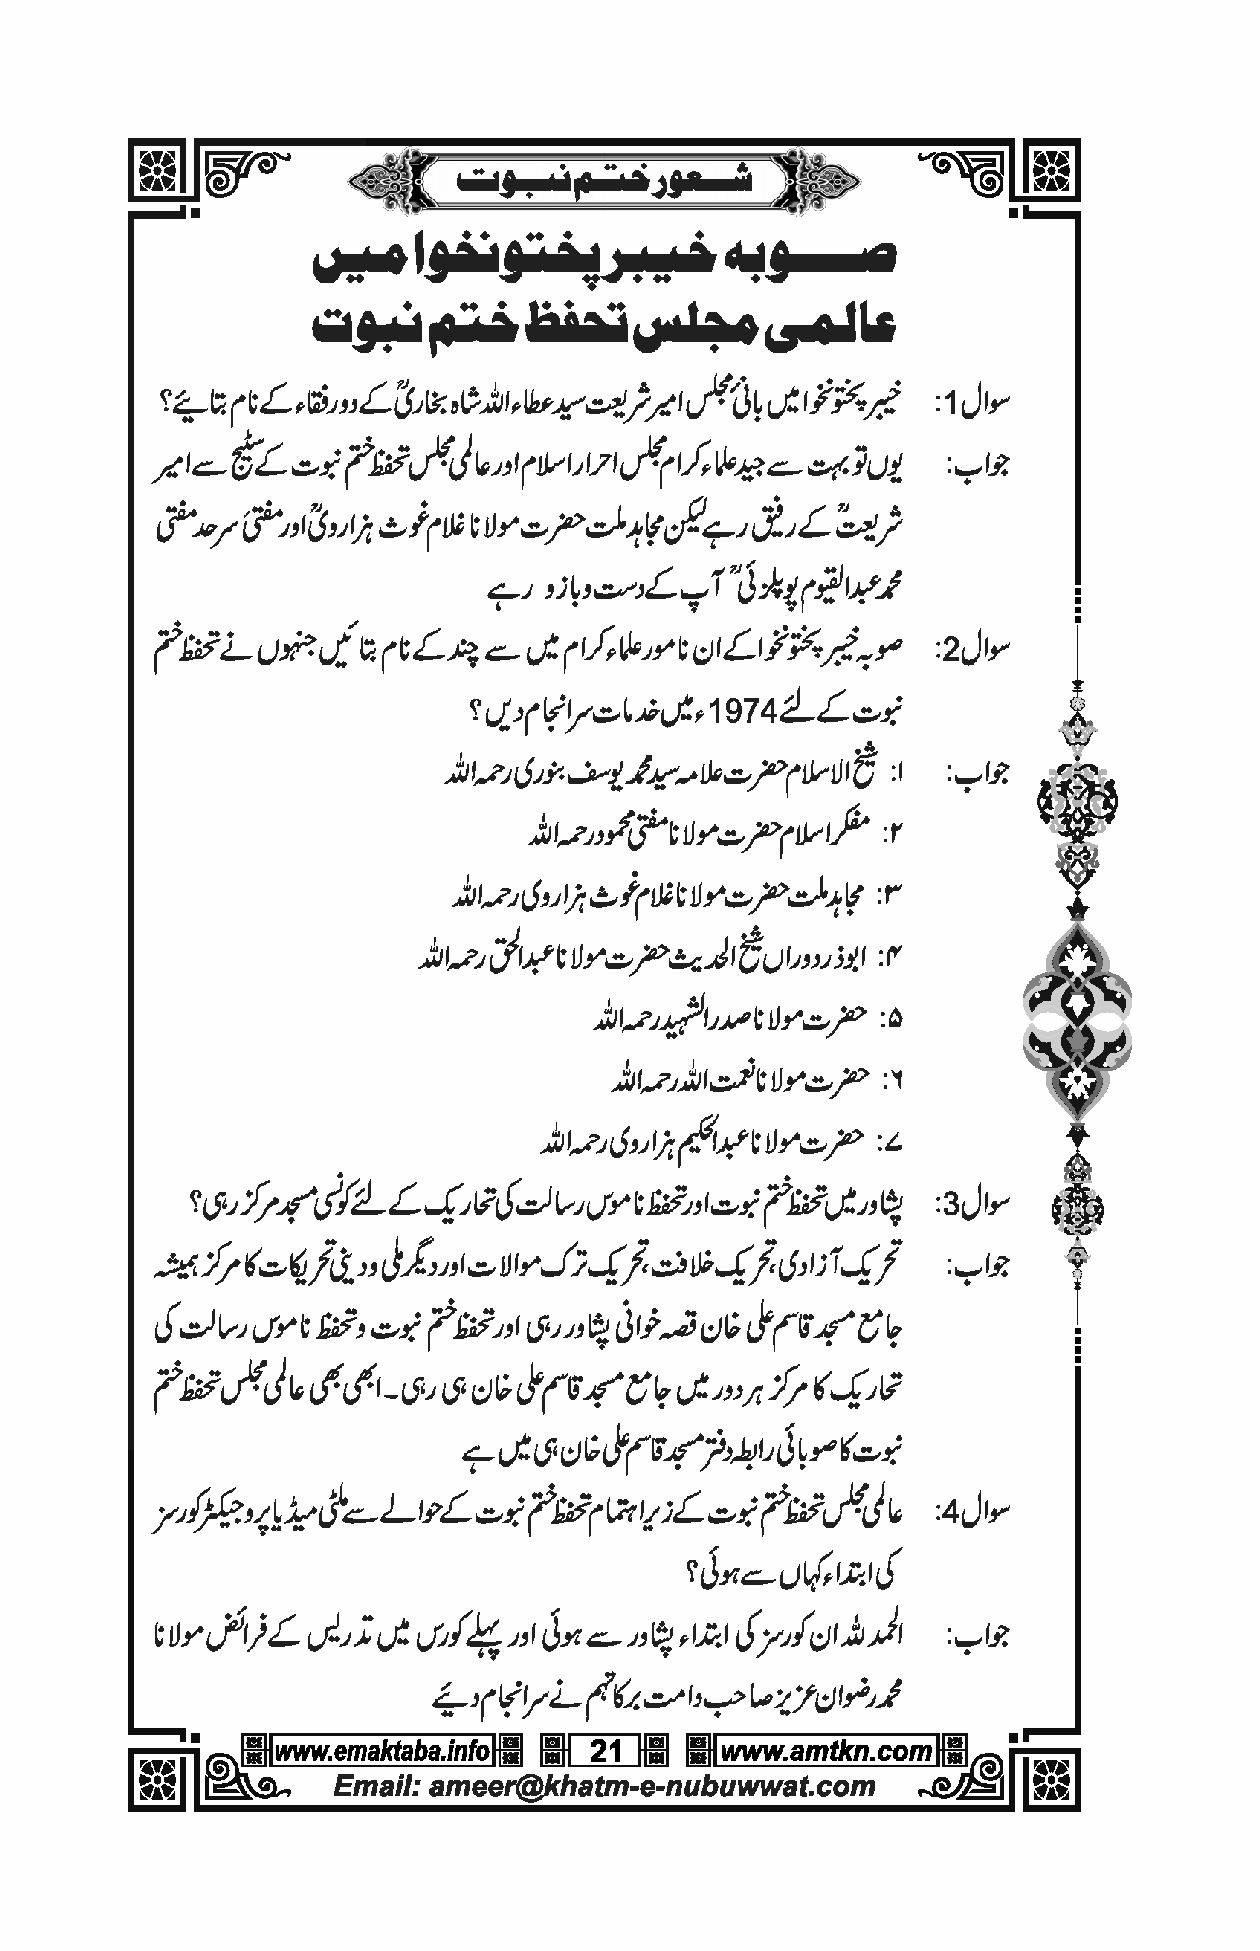 شعور ختم نبوت
صوبہ خیبر پختونخوا میں
عالمی مجلس تحفظ ختم نبوت
سوال1: خیبر پختونخوا میں بانیٔ مجلس امیر شریعت سید عطاء اللہ شاہ بخاریؒ کے دور رفقاء کے نام بتائیے؟
جواب: یوں تو بہت سے جید علماء کرام مجلس احرار اسلام اور عالمی مجلس تحفظ ختم نبوت کے سٹیج سے امیر
شریعتؒ کے رفیق رہے لیکن مجاہد ملت حضرت مولانا غلام غوث ہزارویؒ اور مفتیٔ سرحد مفتی
محمد عبدالقیوم پوپلزئیؒ آپ کے دست و بازو رہے
سوال2: صوبہ خیبر پختونخوا کے ان نامور علماء کرام میں سے چند کے نام بتائیں جنہوں نے تحفظ ختم
نبوت کے لئے 1974ء میں خدمات سرانجام دیں؟
جواب: ۱: شیخ الاسلام حضرت علامہ سید محمد یوسف بنوری رحمہ اللہ
۲: مفکر اسلام حضرت مولانا مفتی محمود رحمہ اللہ
۳: مجاہد ملت حضرت مولانا غلام غوث ہزاروی رحمہ اللہ
۴: ابوذر دوراں شیخ الحدیث حضرت مولانا عبدالحق رحمہ اللہ
۵: حضرت مولانا صدر الشہید رحمہ اللہ
۶: حضرت مولانا نعمت اللہ رحمہ اللہ
۷: حضرت مولانا عبدالحکیم ہزاروی رحمہ اللہ
سوال3: پشاور میں تحفظ ختم نبوت اور تحفظ ناموس رسالت کی تحاریک کے لئے کونسی مسجد مرکز رہی؟
جواب: تحریک آزادی، تحریک خلافت، تحریک ترک موالات اور دیگر ملی و دینی تحریکات کا مرکز ہمیشہ
جامع مسجد قاسم علی خان قصہ خوانی پشاور رہی اور تحفظ ختم نبوت و تحفظ ناموس رسالت کی
تحاریک کا مرکز ہر دور میں جامع مسجد قاسم علی خان ہی رہی۔ ابھی بھی عالمی مجلس تحفظ ختم
نبوت کا صوبائی رابطہ دفتر مسجد قاسم علی خان ہی میں ہے
سوال4: عالمی مجلس تحفظ ختم نبوت کے زیر اہتمام تحفظ ختم نبوت کے حوالے سے ملٹی میڈیا پروجیکٹر کورسز
کی ابتداء کہاں سے ہوئی؟
جواب: الحمد للہ ان کورسز کی ابتداء پشاور سے ہوئی اور پہلے کورس میں تدریس کے فرائض مولانا
محمد رضوان عزیز صاحب دامت برکاتہم نے سرانجام دیئے
www.emaktaba.info 21 www.amtkn.com
Email: ameer@khatm-e-nubuwwat.com